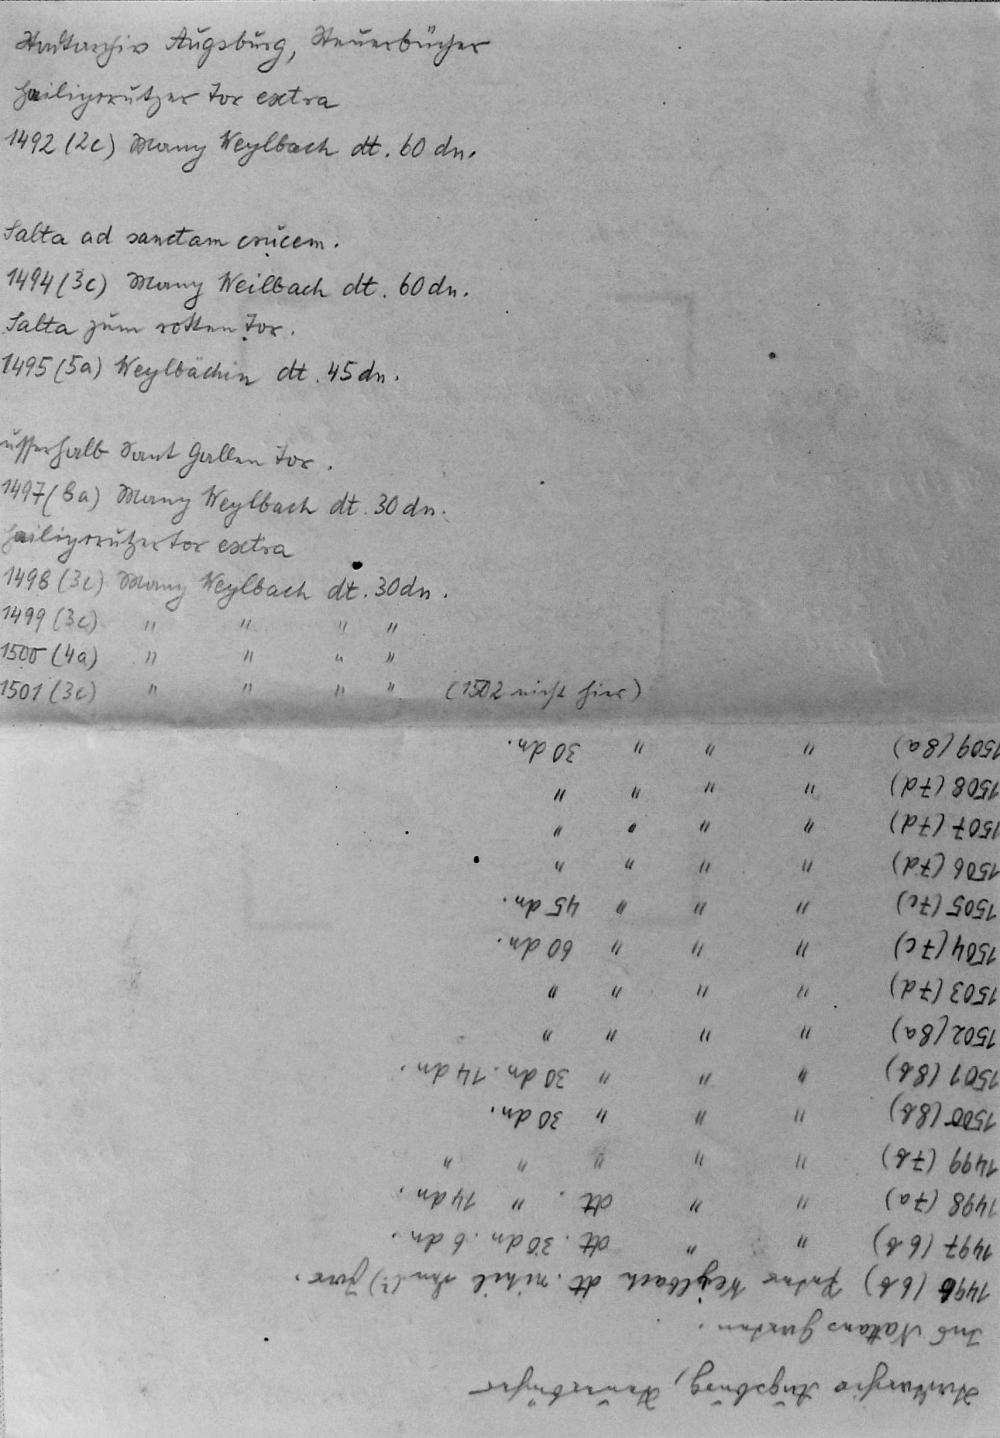 Stadtarchiv Augsburg, Steuerbücher
heiligcrützer tor extra
1492 (2c) Many Weylbach dt. 60 dn.
Salta ad sanctam crucem.
1494 (3c) Many Weilbach dt. 60 dn.
Salta zum rotten tor.
1495 (5a) Weylbächin dt. 45 dn.
usserhalb Sant Gallen tor.
1497 (6a) Many Weylbach dt. 30 dn.
heiligcrützertor extra
1498 (3c) Many Weylbach dt. 30 dn.
1499 (3c) " " " "
1500 (4a) " " " "
1501 (3c) " " " " (1502 nicht hier)
Stadtarchiv Augsburg, Steuerbücher
Ins Nattans Garten.
1496 (6b) Peter Weylbach dt. nihil (?) jur.
1497 (6b) " " dt. 30 dn. 6 dn.
1498 (7a) " " dt. " 14 dn.
1499 (7b) " " " " "
1500 (8b) " " " 30 dn.
1501 (8b) " " " 30 dn. 14 dn.
1502 (8a) " " " "
1503 (7d) " " " "
1504 (7c) " " " 60 dn.
1505 (7c) " " " 45 dn.
1506 (7d) " " " "
1507 (7d) " " " "
1508 (7d) " " " "
1509 (8a) " " " 30 dn.